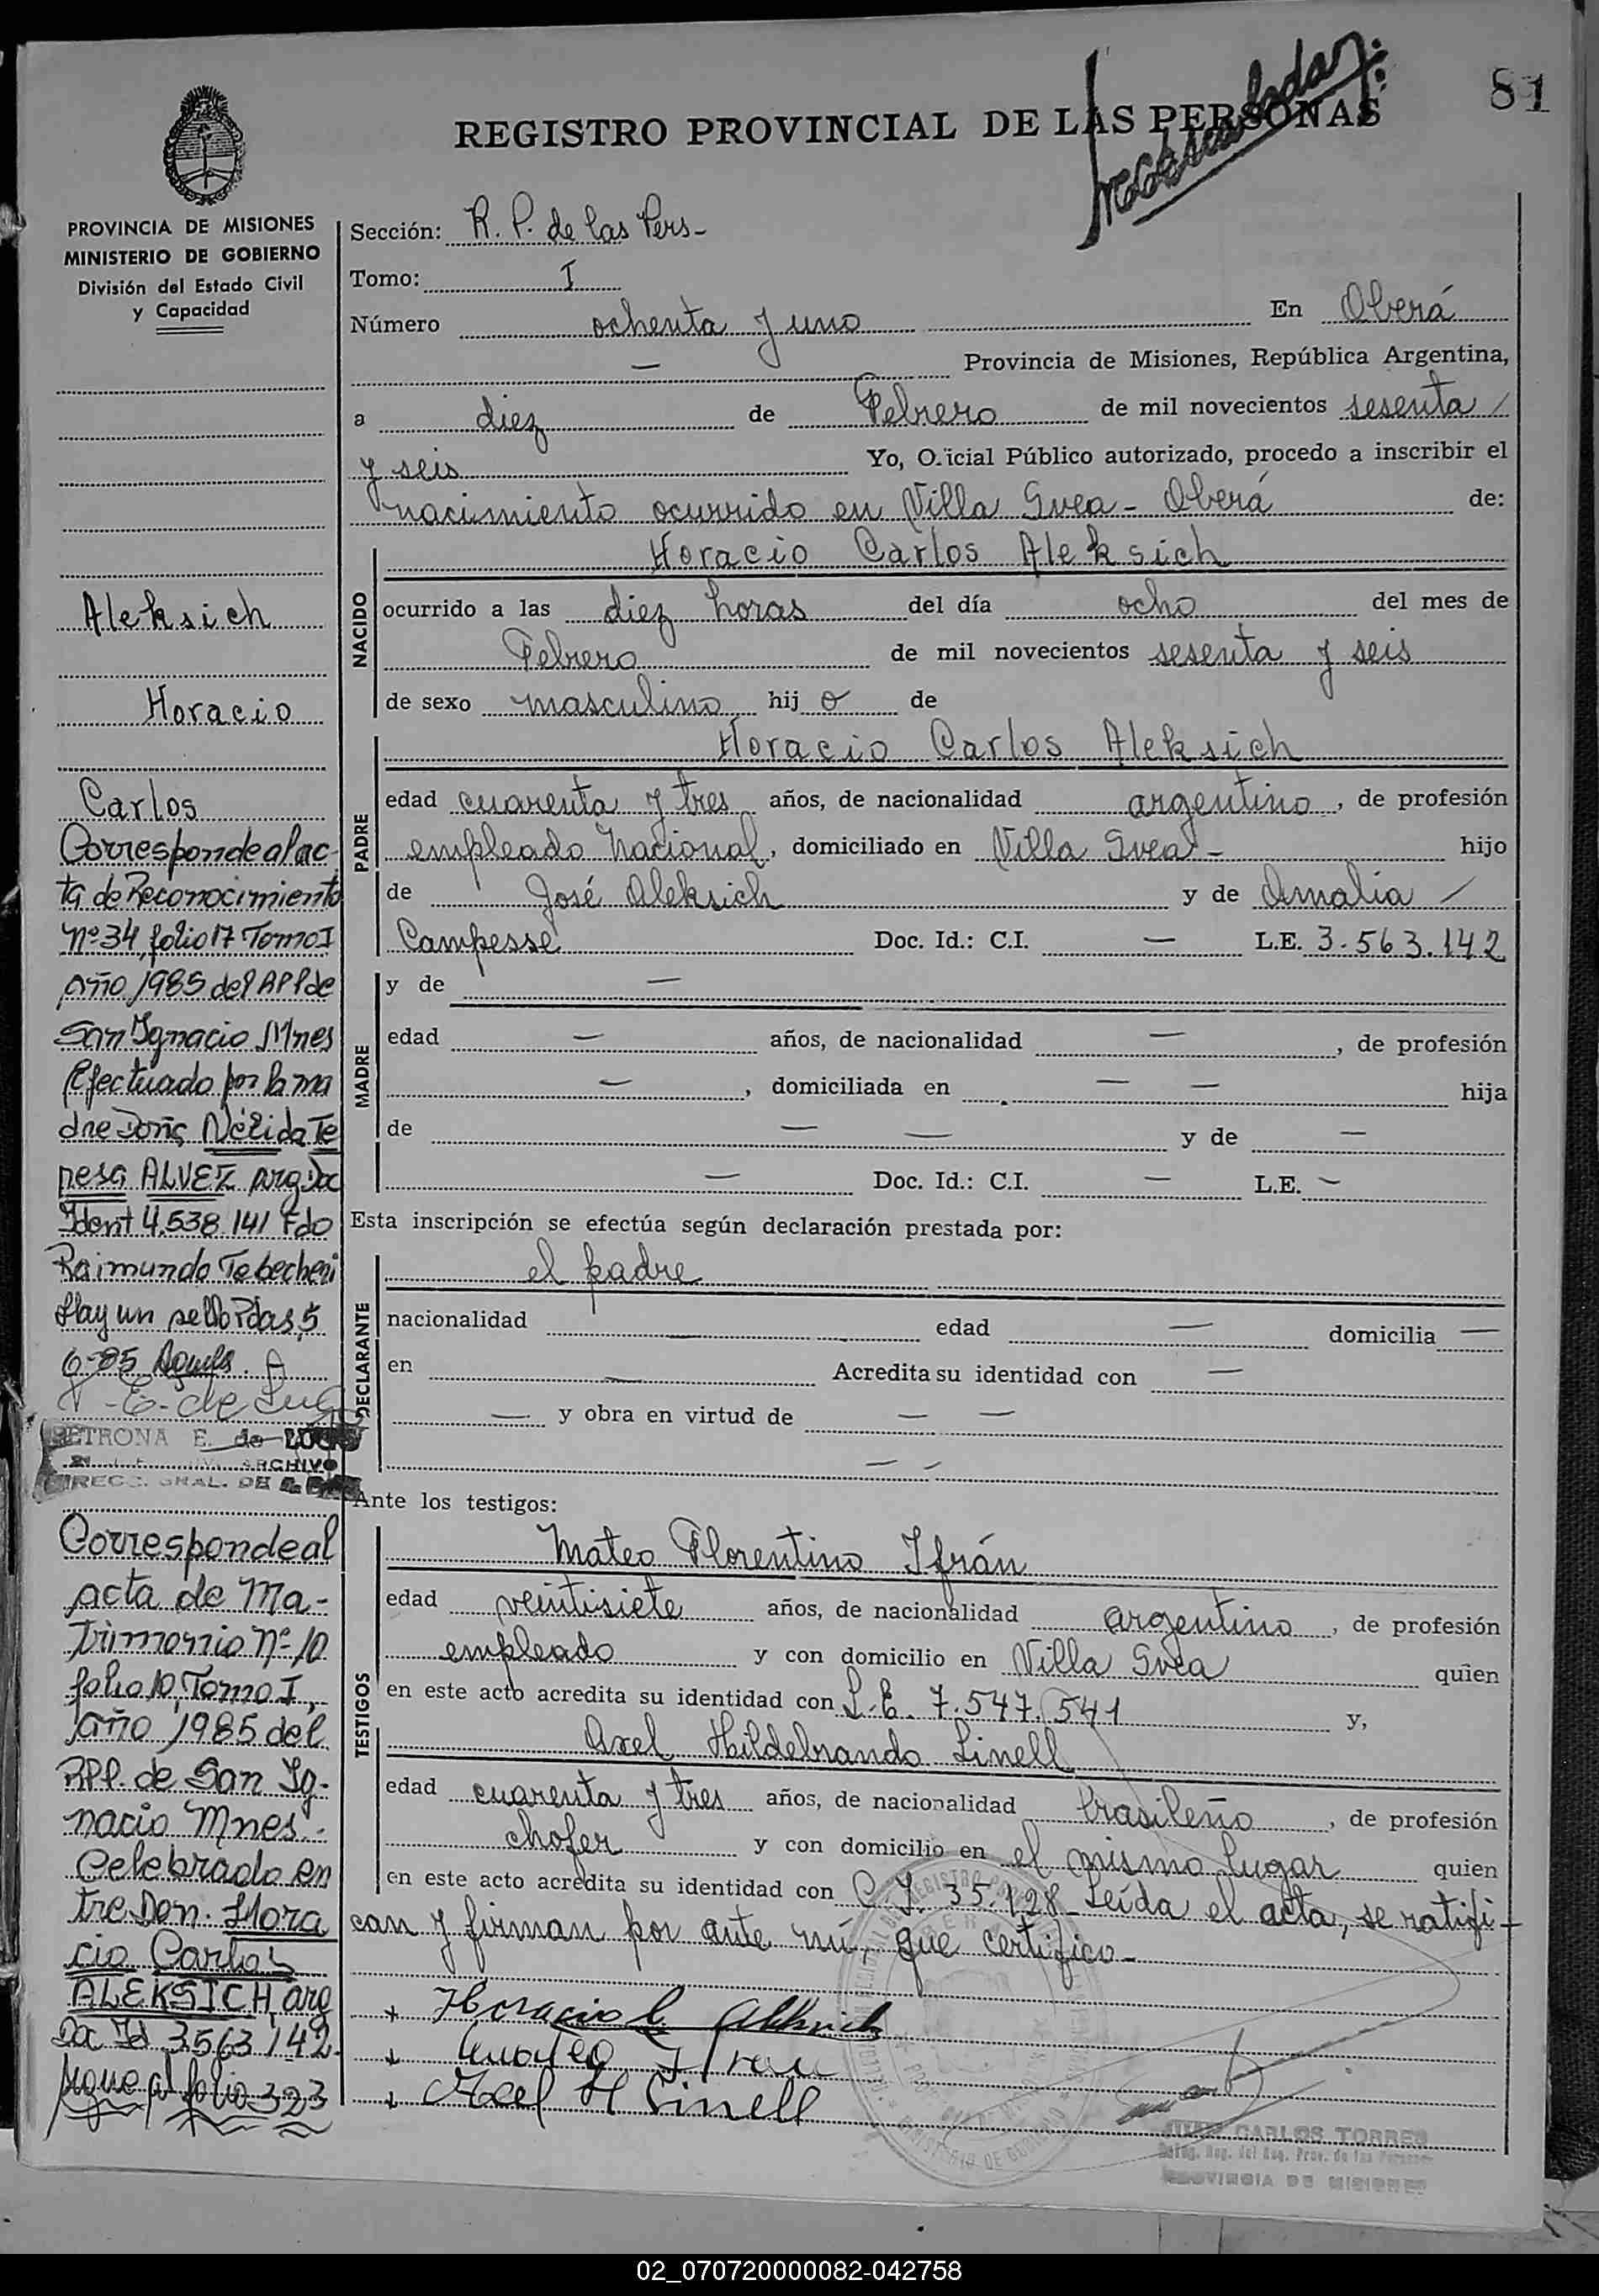 81
REGISTRO PROVINCIAL DE LAS PERSONAS
PROVINCIA DE MISIONES
MINISTERIO DE GOBIERNO
División del Estado Civil
y Capacidad
Aleksich
Horacio
Carlos
Corresponde al ac-
ta de Reconocimiento
Nº 34, folio 17 Tomo I
año 1985 del RPP de
San Ignacio Mnes
Efectuado por la ma
dre Doña Nélida Te
resa ALVEZ arg. Doc
Ident 4.538.141 Fdo
Raimundo Tebecheri
Hay un sello Pdas, 5
6-85
PETRONA E. de LUGO
ARCHIVO
DIRECC. GRAL. DE
Corresponde al
acta de Ma-
trimonio Nº 10
folio 10, Tomo I,
año 1985 del
RPP. de San Ig-
nacio Mnes.-
Celebrado en
tre Don. Hora
cio Carlos
ALEKSICH, arg
Doc Id 3563142.
sigue al folio 323
Sección: R. P. de las Pers-
Tomo: I
Número ochenta y uno En Oberá
— Provincia de Misiones, República Argentina,
a diez de Febrero de mil novecientos sesenta /
y seis Yo, Oficial Público autorizado, procedo a inscribir el
nacimiento ocurrido en Villa Svea - Oberá de:
NACIDO
Horacio Carlos Aleksich
ocurrido a las diez horas del día ocho del mes de
Febrero de mil novecientos sesenta y seis
de sexo masculino hijo de
PADRE
Horacio Carlos Aleksich
edad cuarenta y tres años, de nacionalidad argentino, de profesión
empleado Nacional, domiciliado en Villa Svea - hijo
de José Aleksich y de Amalia /
Campesse Doc. Id.: C.I. — L.E. 3.563.142
MADRE
y de —
edad — años, de nacionalidad —, de profesión
—, domiciliada en — — hija
de — — y de —
— Doc. Id.: C.I. — L.E. —
Esta inscripción se efectúa según declaración prestada por:
DECLARANTE
el padre
nacionalidad — edad — domicilia —
en — Acredita su identidad con —
— y obra en virtud de — —
— —
Ante los testigos:
TESTIGOS
Mateo Florentino Ifrán
edad veintisiete años, de nacionalidad argentino, de profesión
empleado y con domicilio en Villa Svea quien
en este acto acredita su identidad con L.E. 7.547.541 y,
Axel Hildebrando Linell
edad cuarenta y tres años, de nacionalidad brasileño, de profesión
chofer y con domicilio en el mismo lugar quien
en este acto acredita su identidad con C.I. 35.128- Leída el acta, se ratifi-
can y firman por ante mí, que certifico-
+ Horacio C. Aleksich
+ Mateo Ifran
+ Axel H Linell
JUAN CARLOS TORRES
PROVINCIA DE MISIONES
02_070720000082-042758